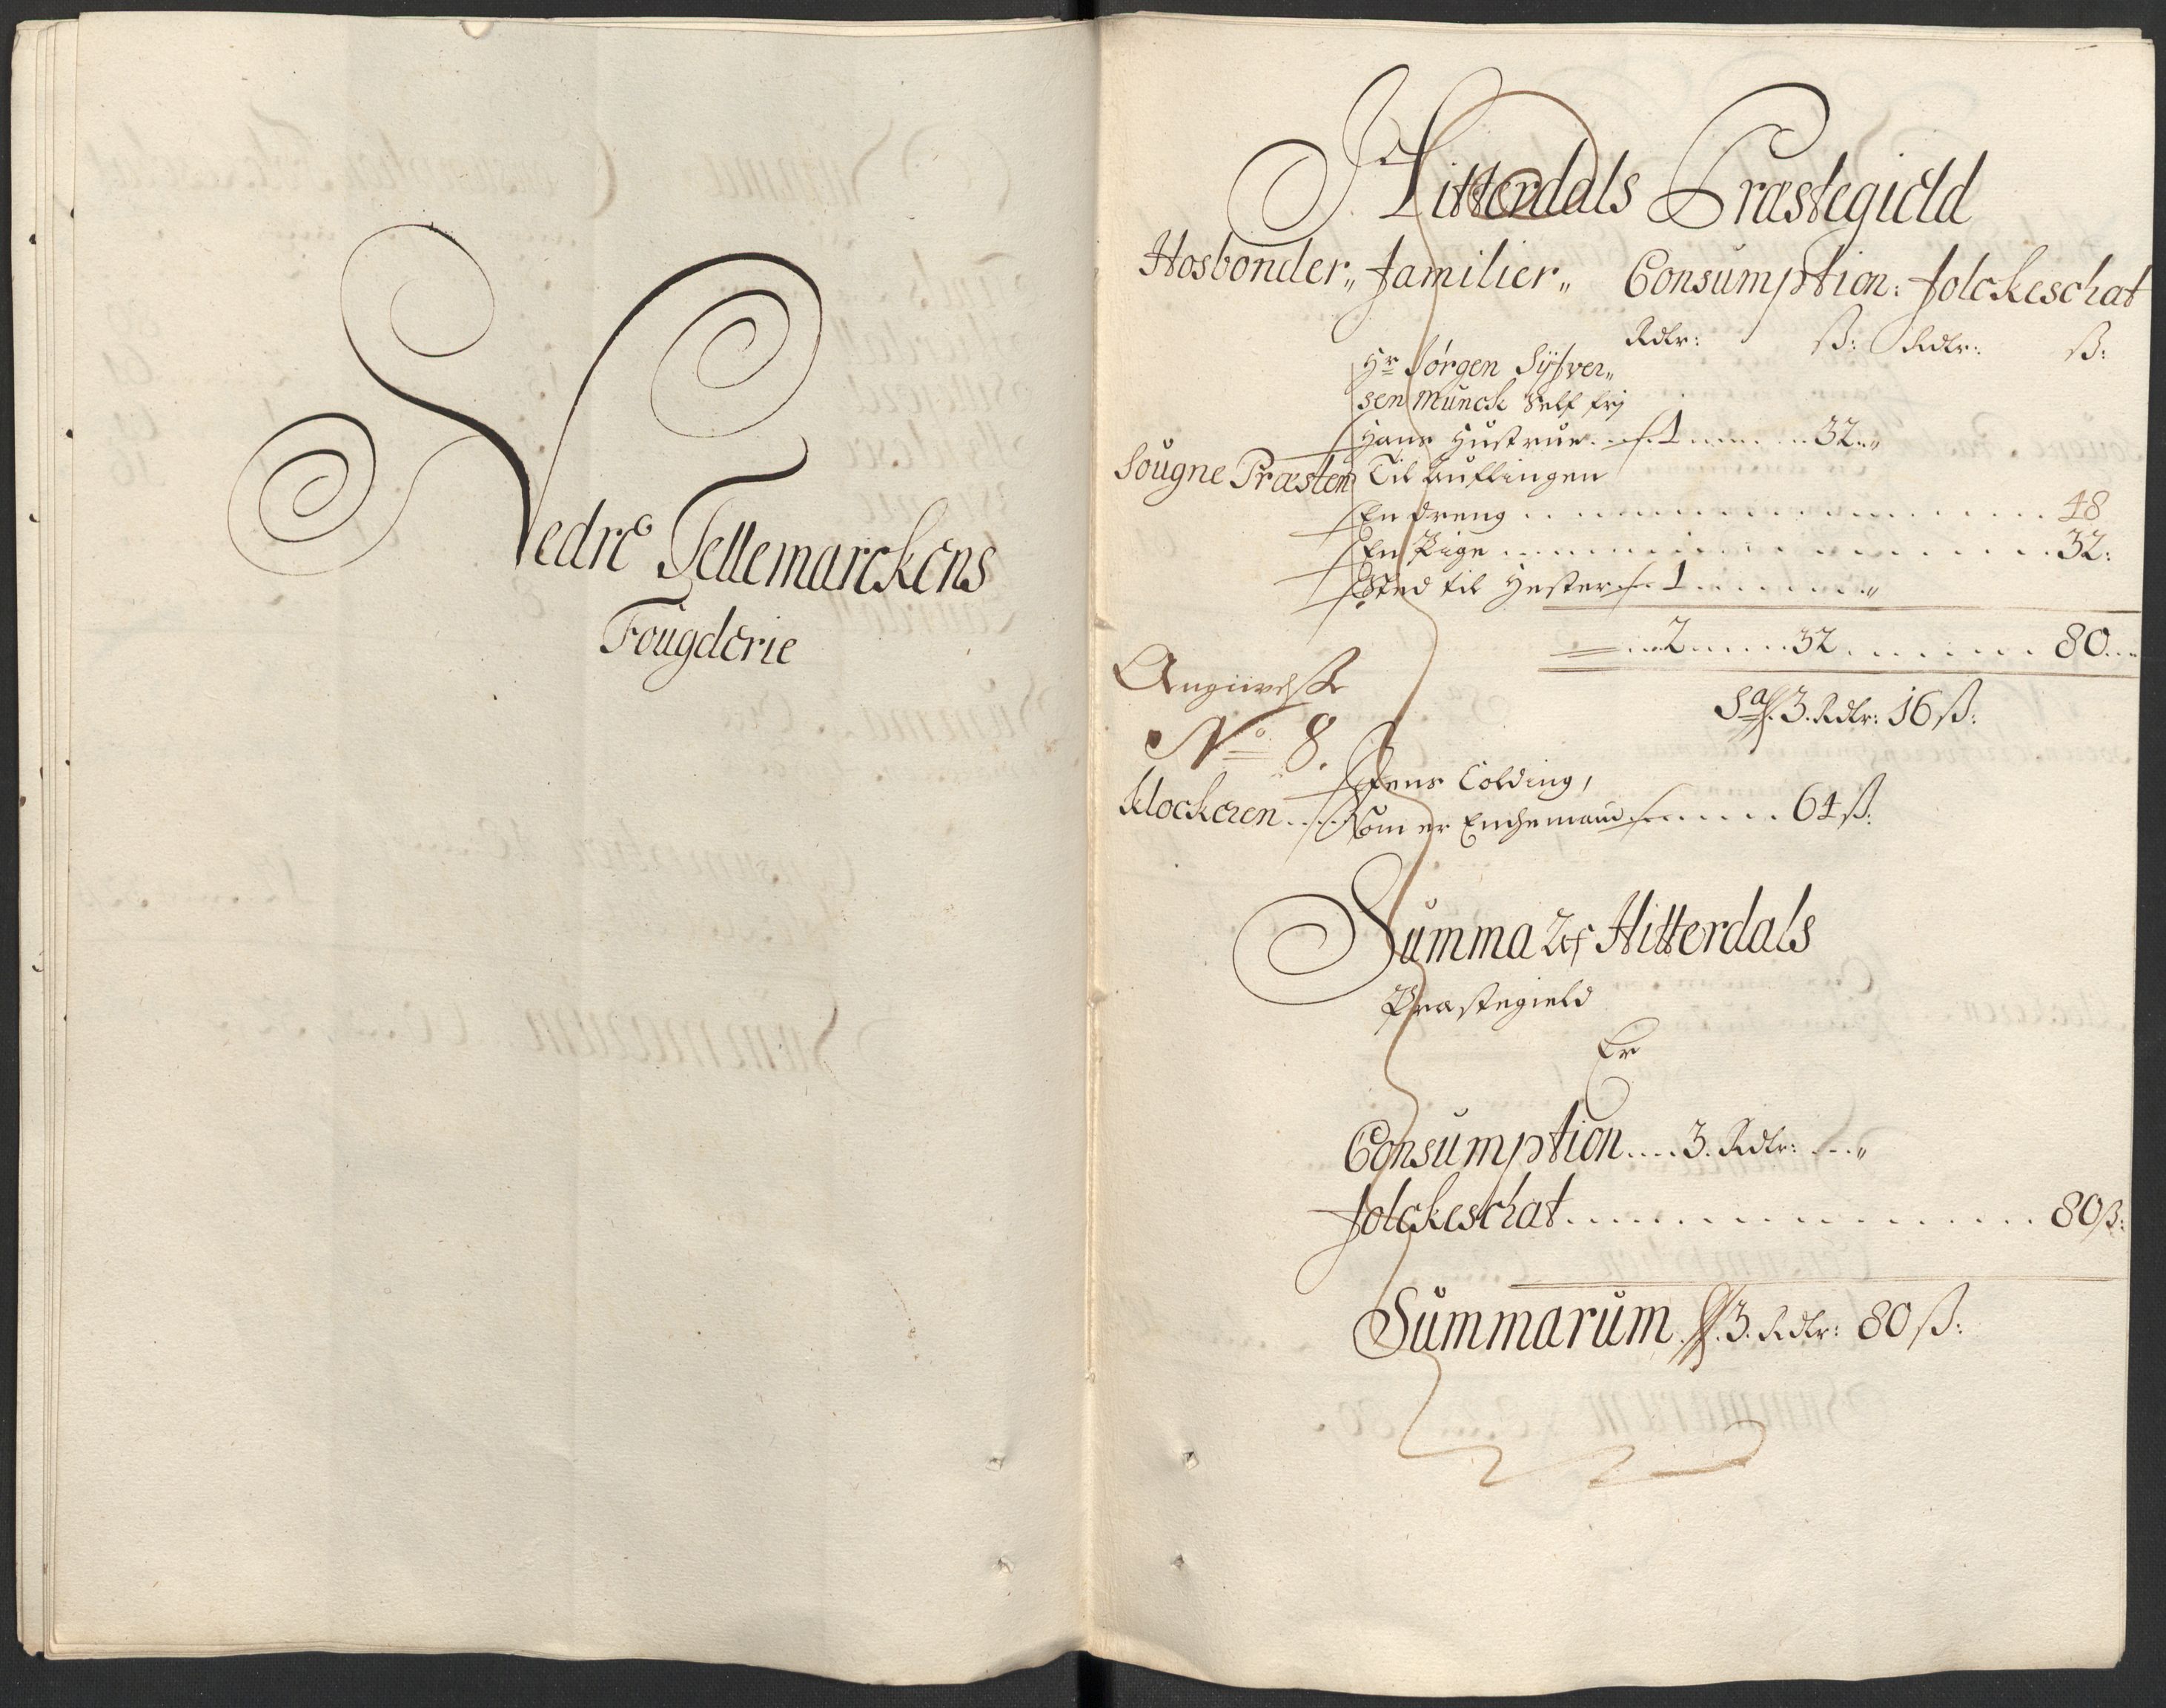 Nedre Tellemarckens
Fougderie
Hitterdals Præstegield
Hosbonder,, Familier,, Consumption: Folckeschat
Rdlr: ß: Rdlr: ß:
Hr Jörgen Syfver,,
sen Munck Self frj
Hans Hustrue 1 32 ,,
Sougne Præsten Til Auflingen
En dreng 48
En Pige 32:
Sted til Hester 1 ,,
2 32 80
Sa 3. Rdlr: 16 ß:
Angivelse
No 8.
Klockeren Jens Colding,
Som er Enchemand 64 ß:
Summa af Hitterdals
Præstegield
Er
Consumption 3. Rdlr: ,,
Folckeschat 80 ß:
Summarum 3. Rdlr: 80 ß: